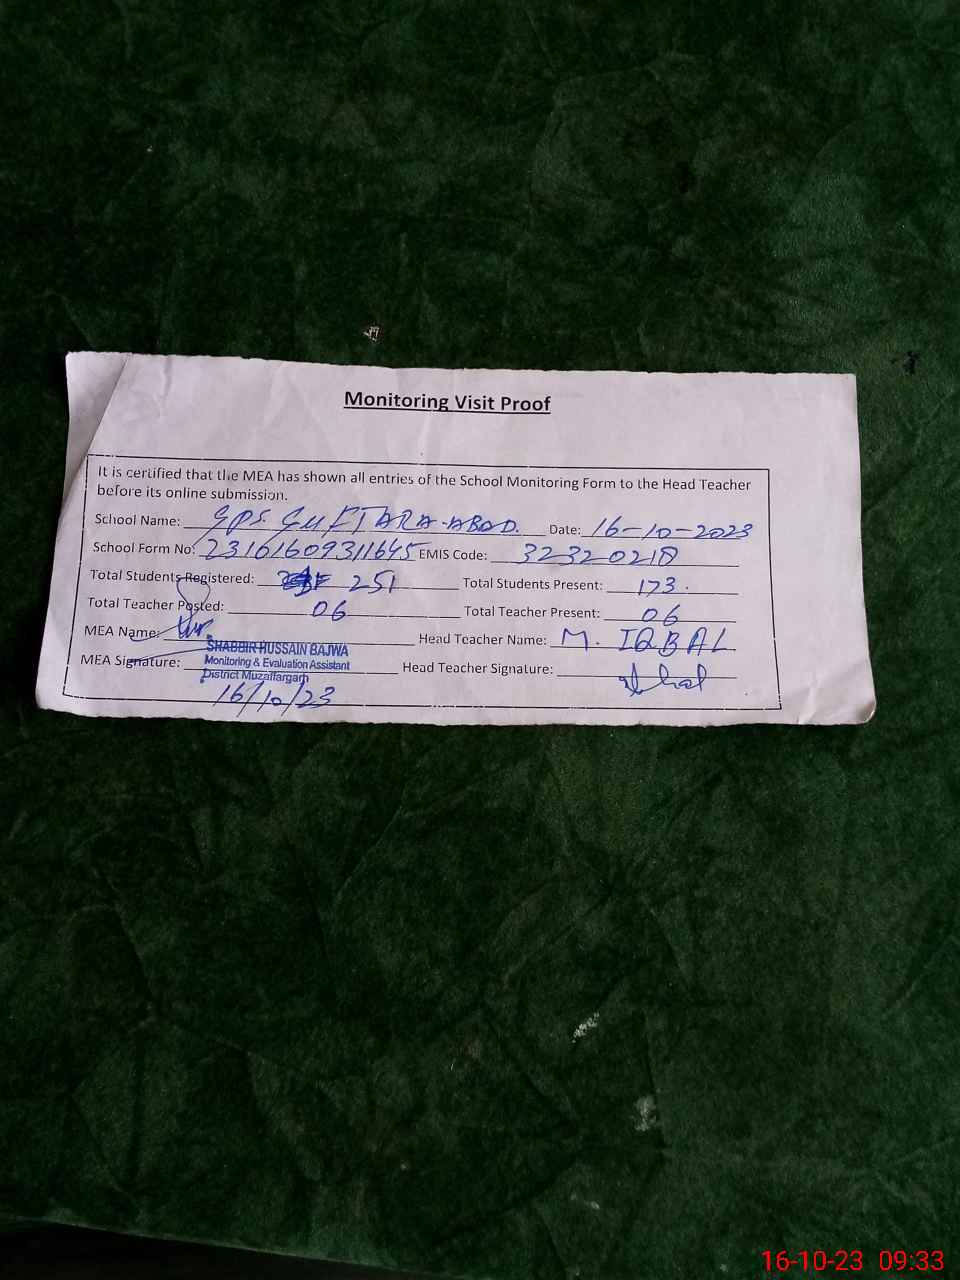 Monitoring Visit Proof
It is certified that the MEA has shown all entries of the School Monitoring Form to the Head Teacher
before its online submission.
School Name: GPS. GUFTARA-ABAD. Date: 16-10-2023
School Form No: 23161609311645 EMIS Code: 32320218
Total Students Registered: 251 Total Students Present: 173.
Total Teacher Posted: 06 Total Teacher Present: 06
MEA Name: Head Teacher Name: M. IQBAL
SHABBIR HUSSAIN BAJWA
MEA Signature: Monitoring & Evaluation Assistant Head Teacher Signature: Iqbal
District Muzaffargarh
16/10/23
16-10-23 09:33